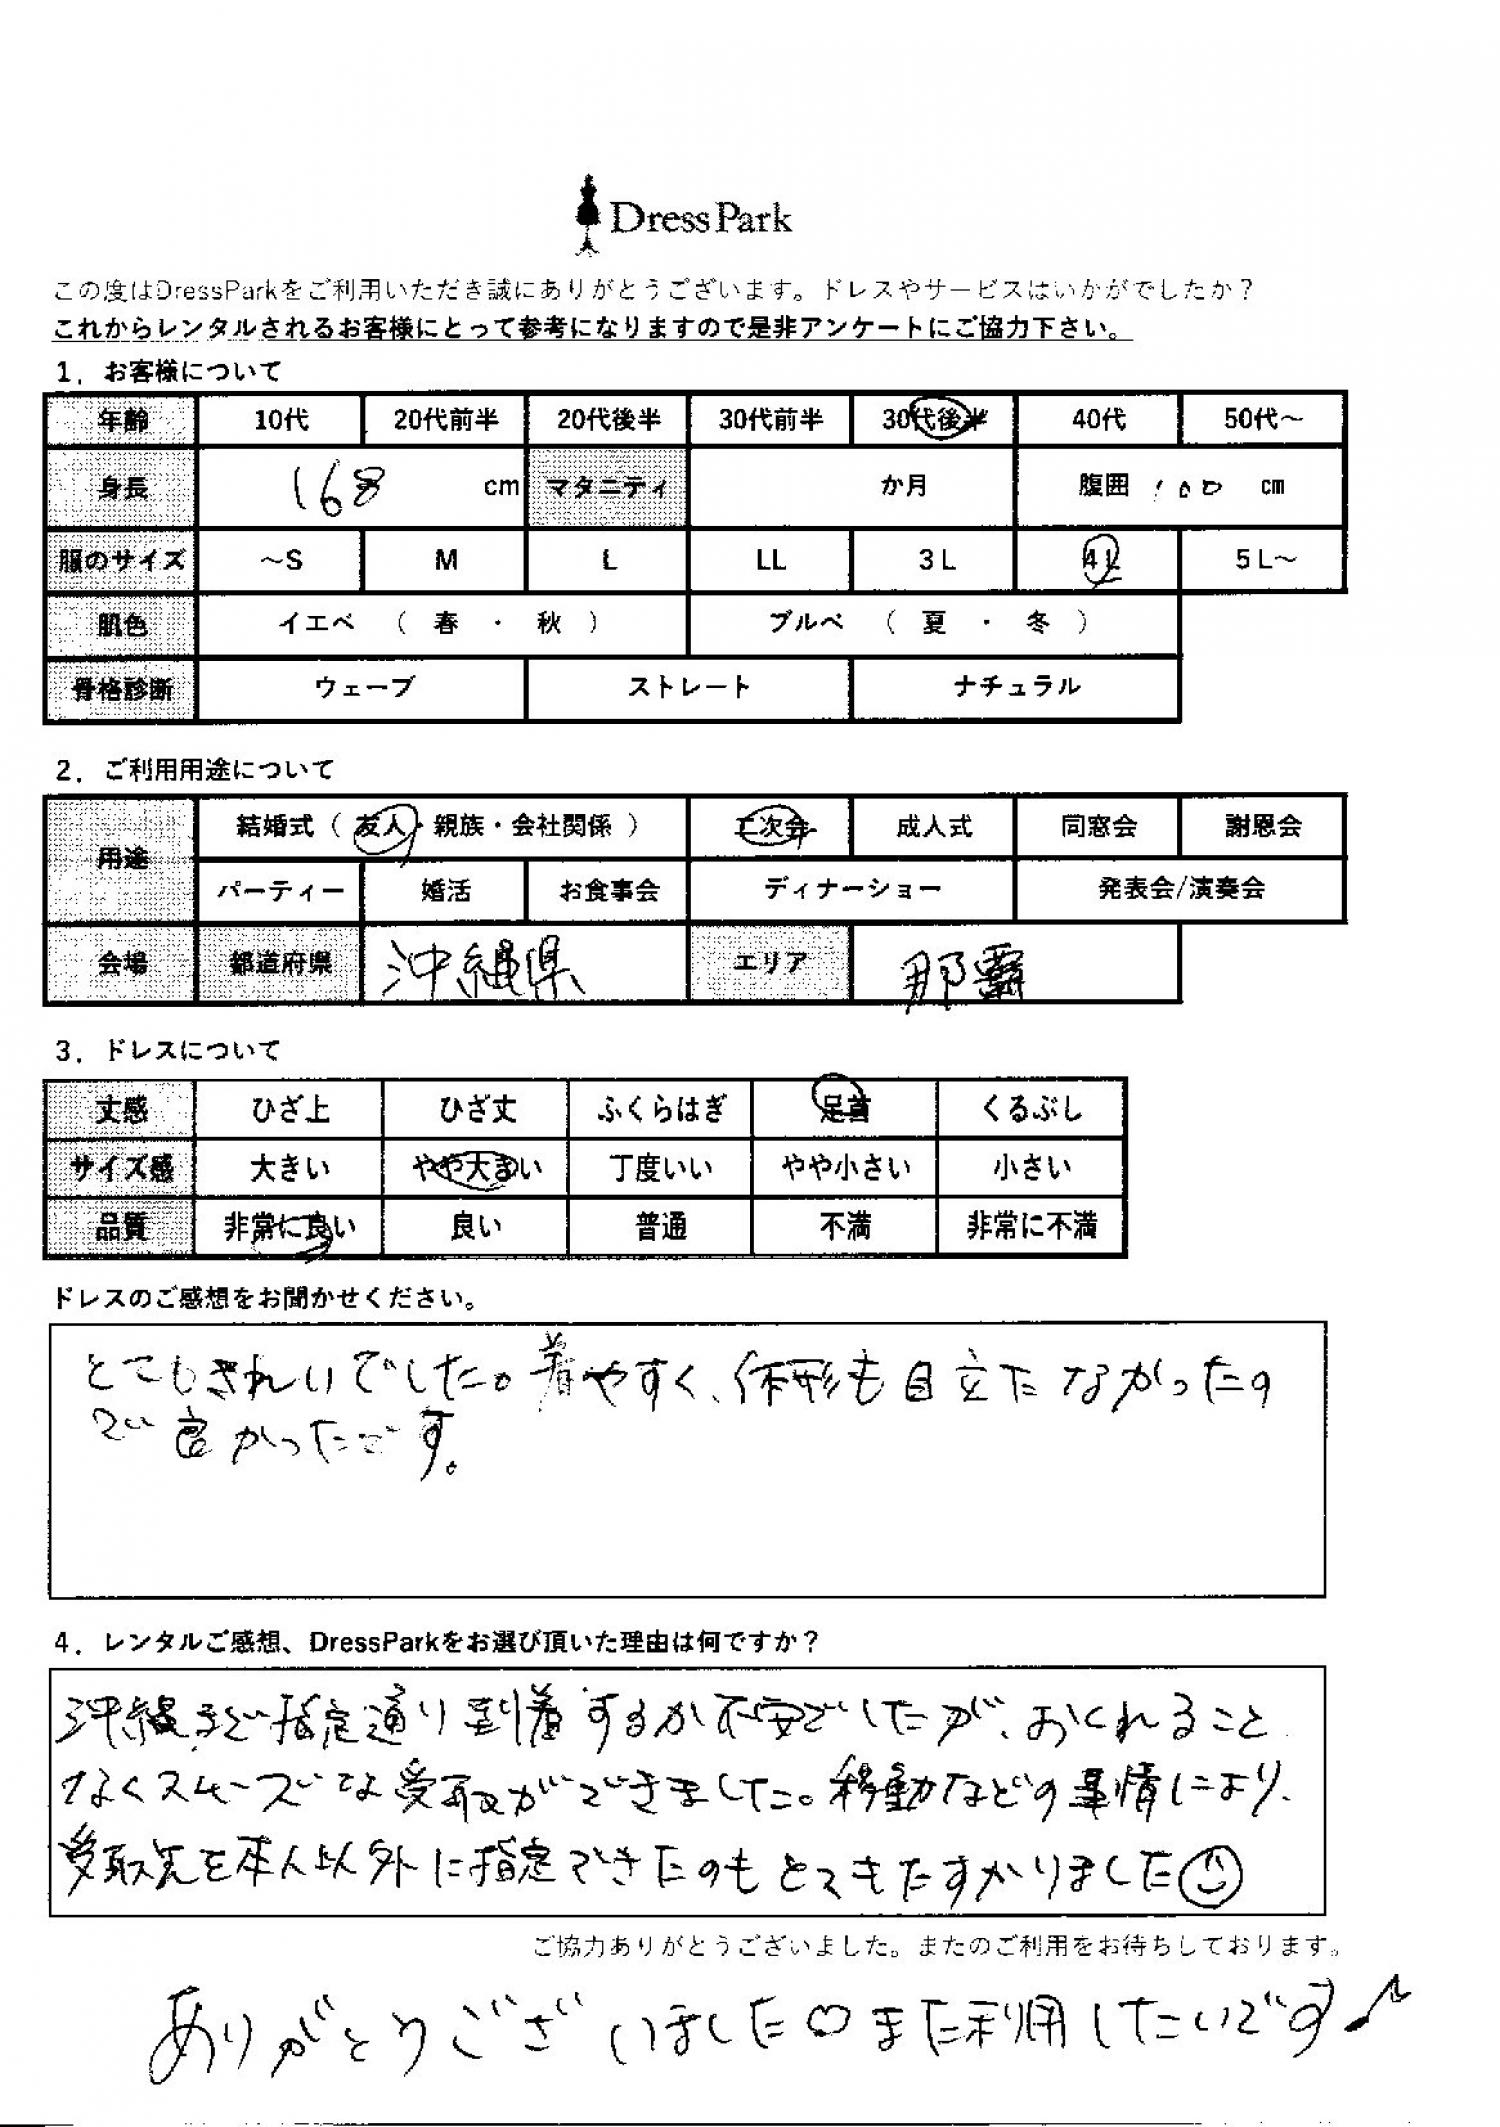 DressPark
この度はDressParkをご利用いただき誠にありがとうございます。ドレスやサービスはいかがでしたか？
これからレンタルされるお客様にとって参考になりますので是非アンケートにご協力下さい。
1．お客様について
年齢 10代 20代前半 20代後半 30代前半 30代後半 40代 50代～
身長 168 cm マタニティ か月 腹囲 100 cm
服のサイズ ～S M L LL 3L 4L 5L～
肌色 イエベ （ 春 ・ 秋 ） ブルベ （ 夏 ・ 冬 ）
骨格診断 ウェーブ ストレート ナチュラル
2．ご利用用途について
用途 結婚式（ 友人・親族・会社関係 ） 二次会 成人式 同窓会 謝恩会
パーティー 婚活 お食事会 ディナーショー 発表会/演奏会
会場 都道府県 沖縄県 エリア 那覇
3．ドレスについて
丈感 ひざ上 ひざ丈 ふくらはぎ 足首 くるぶし
サイズ感 大きい やや大きい 丁度いい やや小さい 小さい
品質 非常に良い 良い 普通 不満 非常に不満
ドレスのご感想をお聞かせください。
とてもきれいでした。着やすく、体形も目立たなかったの
で良かったです。
4．レンタルご感想、DressParkをお選び頂いた理由は何ですか？
沖縄まで指定通り到着するか不安でしたが、おくれること
なくスムーズな受取ができました。移動などの事情により、
受取先を本人以外に指定できたのもとてもたすかりました☺
ご協力ありがとうございました。またのご利用をお待ちしております。
ありがとうございました♡また利用したいです♪